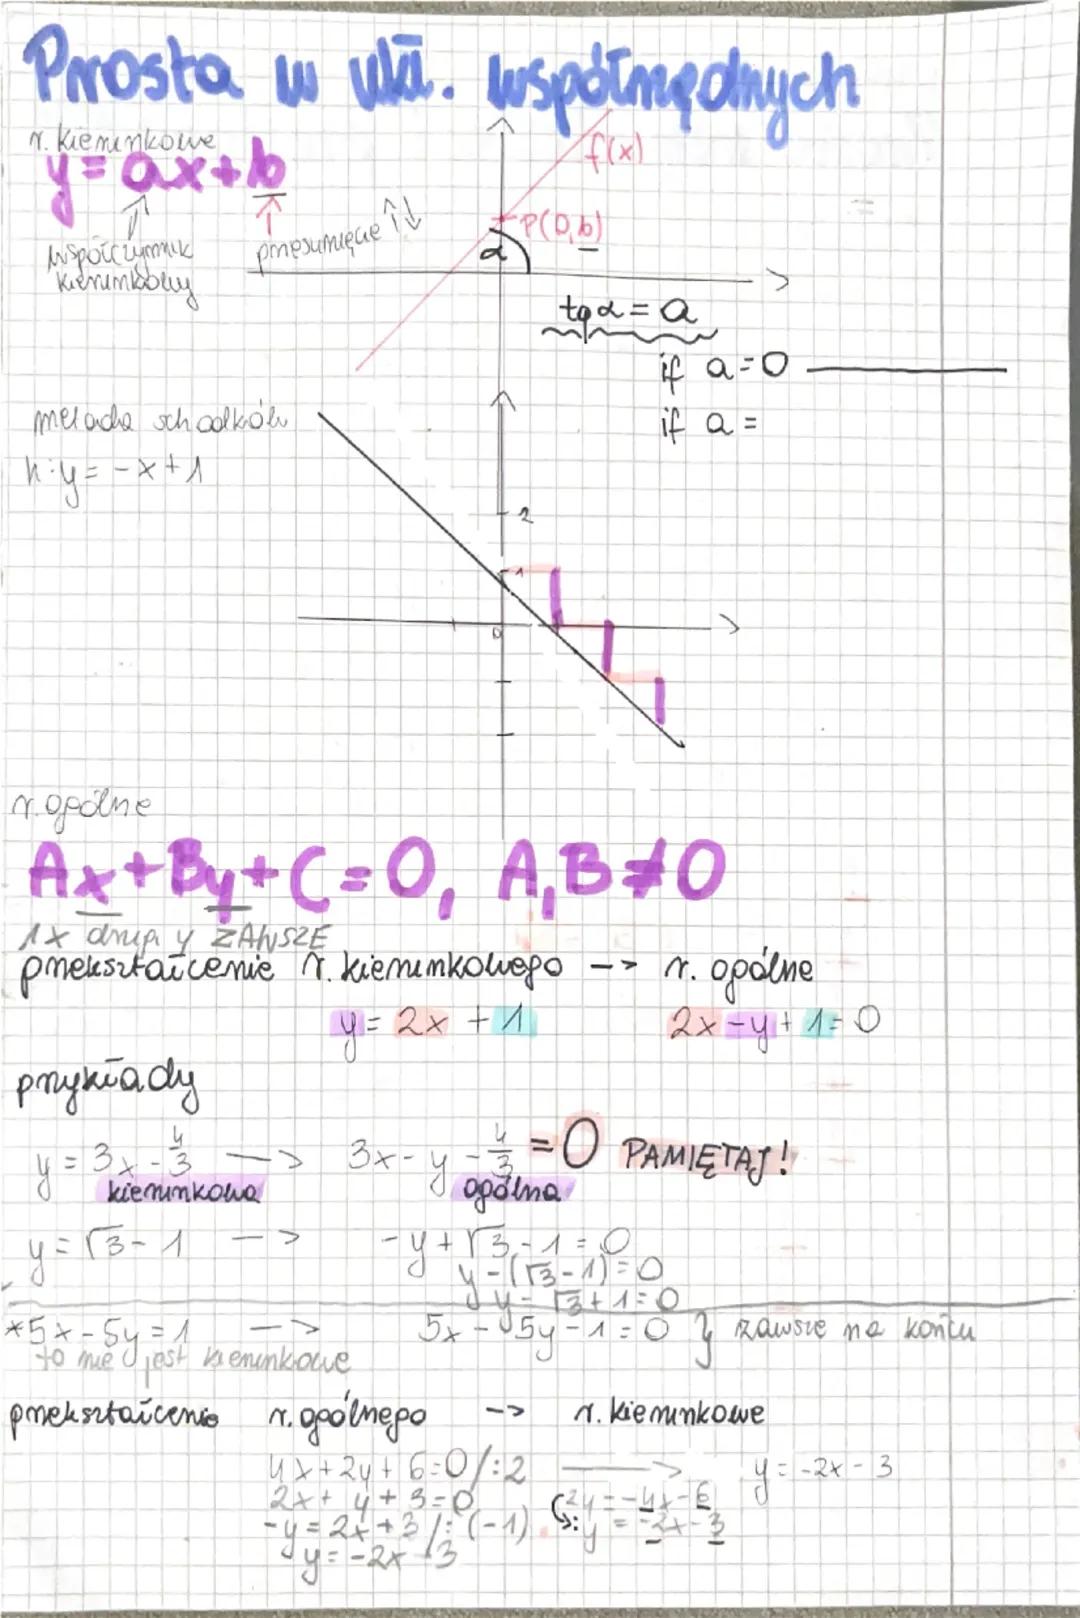 Prosta w ukł. współrzędnych
r. kierunkowe
y = ax + b
współczynnik
kierunkowy
przesunięcie ↑↓
f(x)
P(0,b)
α
tg α = a
if a = 0
if a =
metoda schodków
k: y = -x + 1
2
1
0
r. ogólne
Ax + By + C = 0, A, B ≠ 0
1x y ZAWSZE
przekształcenie r. kierunkowego --> r. ogólne
y = 2x + 1 2x - y + 1 = 0
przykłady
y = 3x - 4/3 --> 3x - y - 4/3 = 0 PAMIĘTAJ!
kierunkowa ogólna
y = √3 - 1 --> -y + √3 - 1 = 0
y - (√3 - 1) = 0
y - √3 + 1 = 0
*5x - 5y = 1 --> 5x - 5y - 1 = 0 } zawsze na końcu
to nie jest kierunkowe
przekształcenie r. ogólnego --> r. kierunkowe
4x + 2y + 6 = 0 /:2 → y = -2x - 3
2x + y + 3 = 0 2y = -4x - 6
-y = 2x + 3 /:(-1) : y = -2x - 3
y = -2x - 3